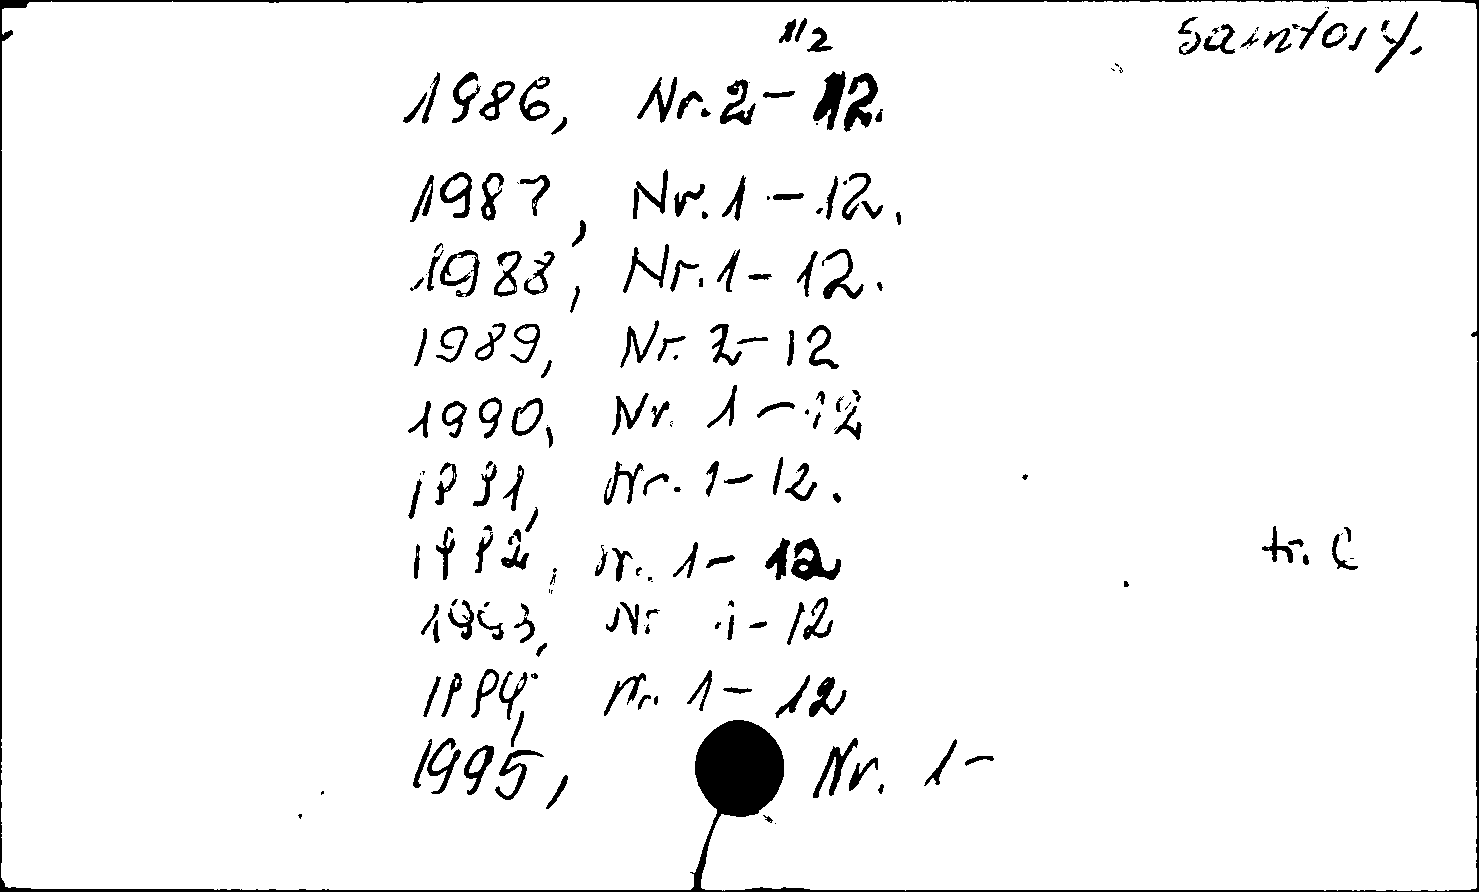 1986, Nr. 2 - 12.
1987, Nr. 1 - 12.
1988, Nr. 1 - 12.
1989, Nr. 2 - 12
1990, Nr. 1 - 12
1991, Nr. 1 - 12.
1992, Nr. 1 - 12
1993, Nr 1 - 12
tr.
1994, Nr. 1 - 12
1995, Nr. 1 -